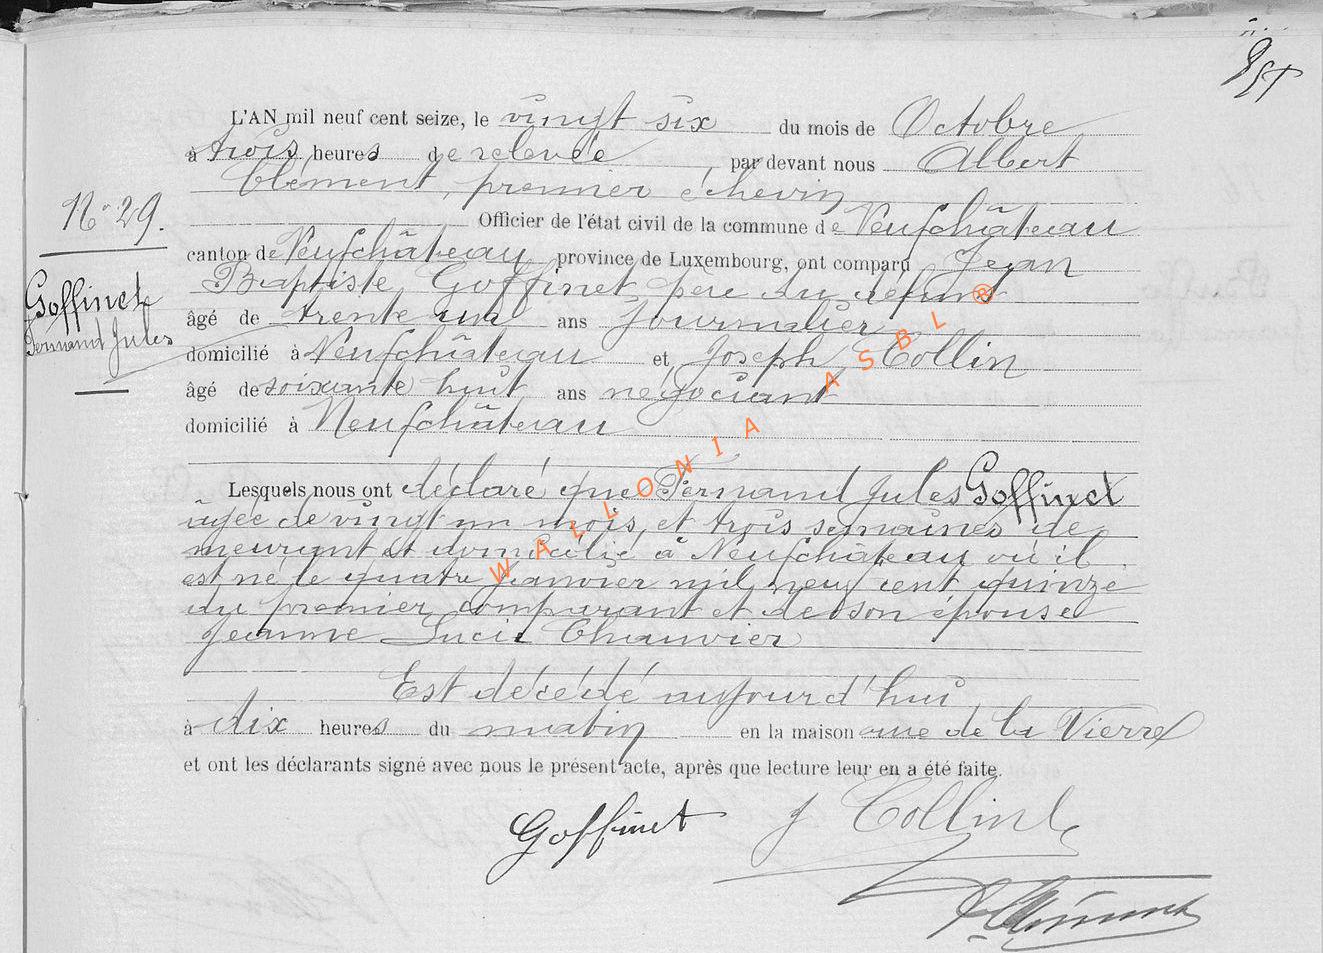 L'AN mil neuf cent seize, le vingt six du mois de Octobre
à trois heures de relevée par devant nous Albert
Clément, premier échevin
N° 29.
Officier de l'état civil de la commune de Neufchâteau
canton de Neufchâteau province de Luxembourg, ont comparu Jean
Baptiste Goffinet, père du défunt
Goffinet
Fernand Jules
âgé de trente un ans journalier
domicilié à Neufchâteau et Joseph Collin
âgé de soixante huit ans négociant
domicilié à Neufchâteau
WALLONIA ASBL ®
Lesquels nous ont déclaré que Fernand Jules Goffinet
âgée de vingt un mois, et trois semaines de
meurant et domicilié à Neufchâteau où il
est né le quatre janvier mil neuf cent quinze
du premier comparant et de son épouse
Jeanne Lucie Chauvier
Est décédé aujourd'hui
à dix heures du matin en la maison rue de la Vierre
et ont les déclarants signé avec nous le présent acte, après que lecture leur en a été faite.
Goffinet J Collin